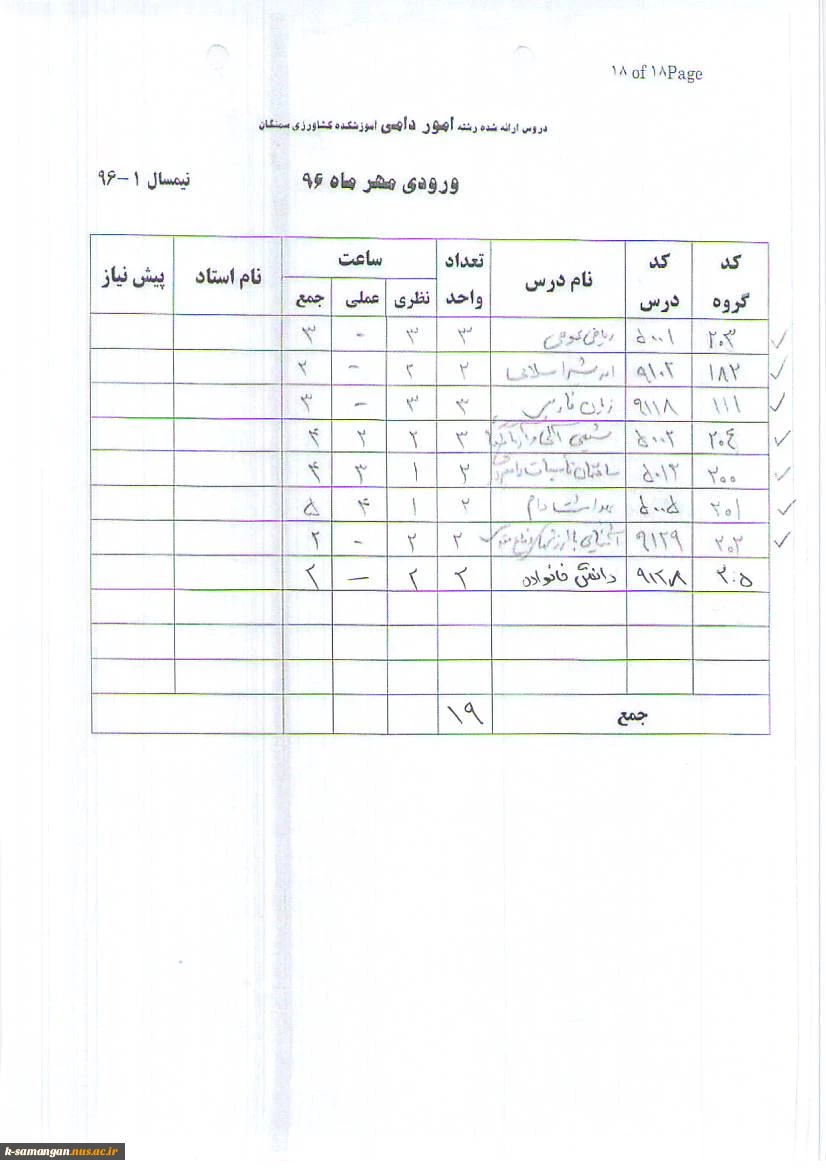 ۱۸ of ۱۸Page
دروس ارائه شده رشته امور دامی آموزشکده کشاورزی سمنگان
ورودی مهر ماه ۹۶ نیمسال ۱-۹۶
کد گروه کد درس نام درس تعداد واحد ساعت نام استاد پیش نیاز
نظری عملی جمع
۲۰۳ ۵۰۰۱ ریاضی عمومی ۳ ۳ - ۳
۱۸۲ ۹۱۰۲ اندیشه اسلامی ۲ ۲ - ۲
۱۱۱ ۹۱۱۸ زبان فارسی ۳ ۳ - ۳
۲۰۴ ۵۰۰۲ شیمی آلی و ۳ ۲ ۲ ۴
۲۰۰ ۵۰۱۲ ساختمان تاسیسات ۲ ۱ ۳ ۴
۲۰۱ ۵۰۰۵ بهداشت دام ۲ ۱ ۴ ۵
۲۰۲ ۹۱۲۹ آشنایی با ارزشهای دفاع مقدس ۲ ۲ - ۲
۲۰۵ ۹۱۲۸ دانش خانواده ۲ ۲ - ۲
جمع ۱۹
k-samangan.nus.ac.ir